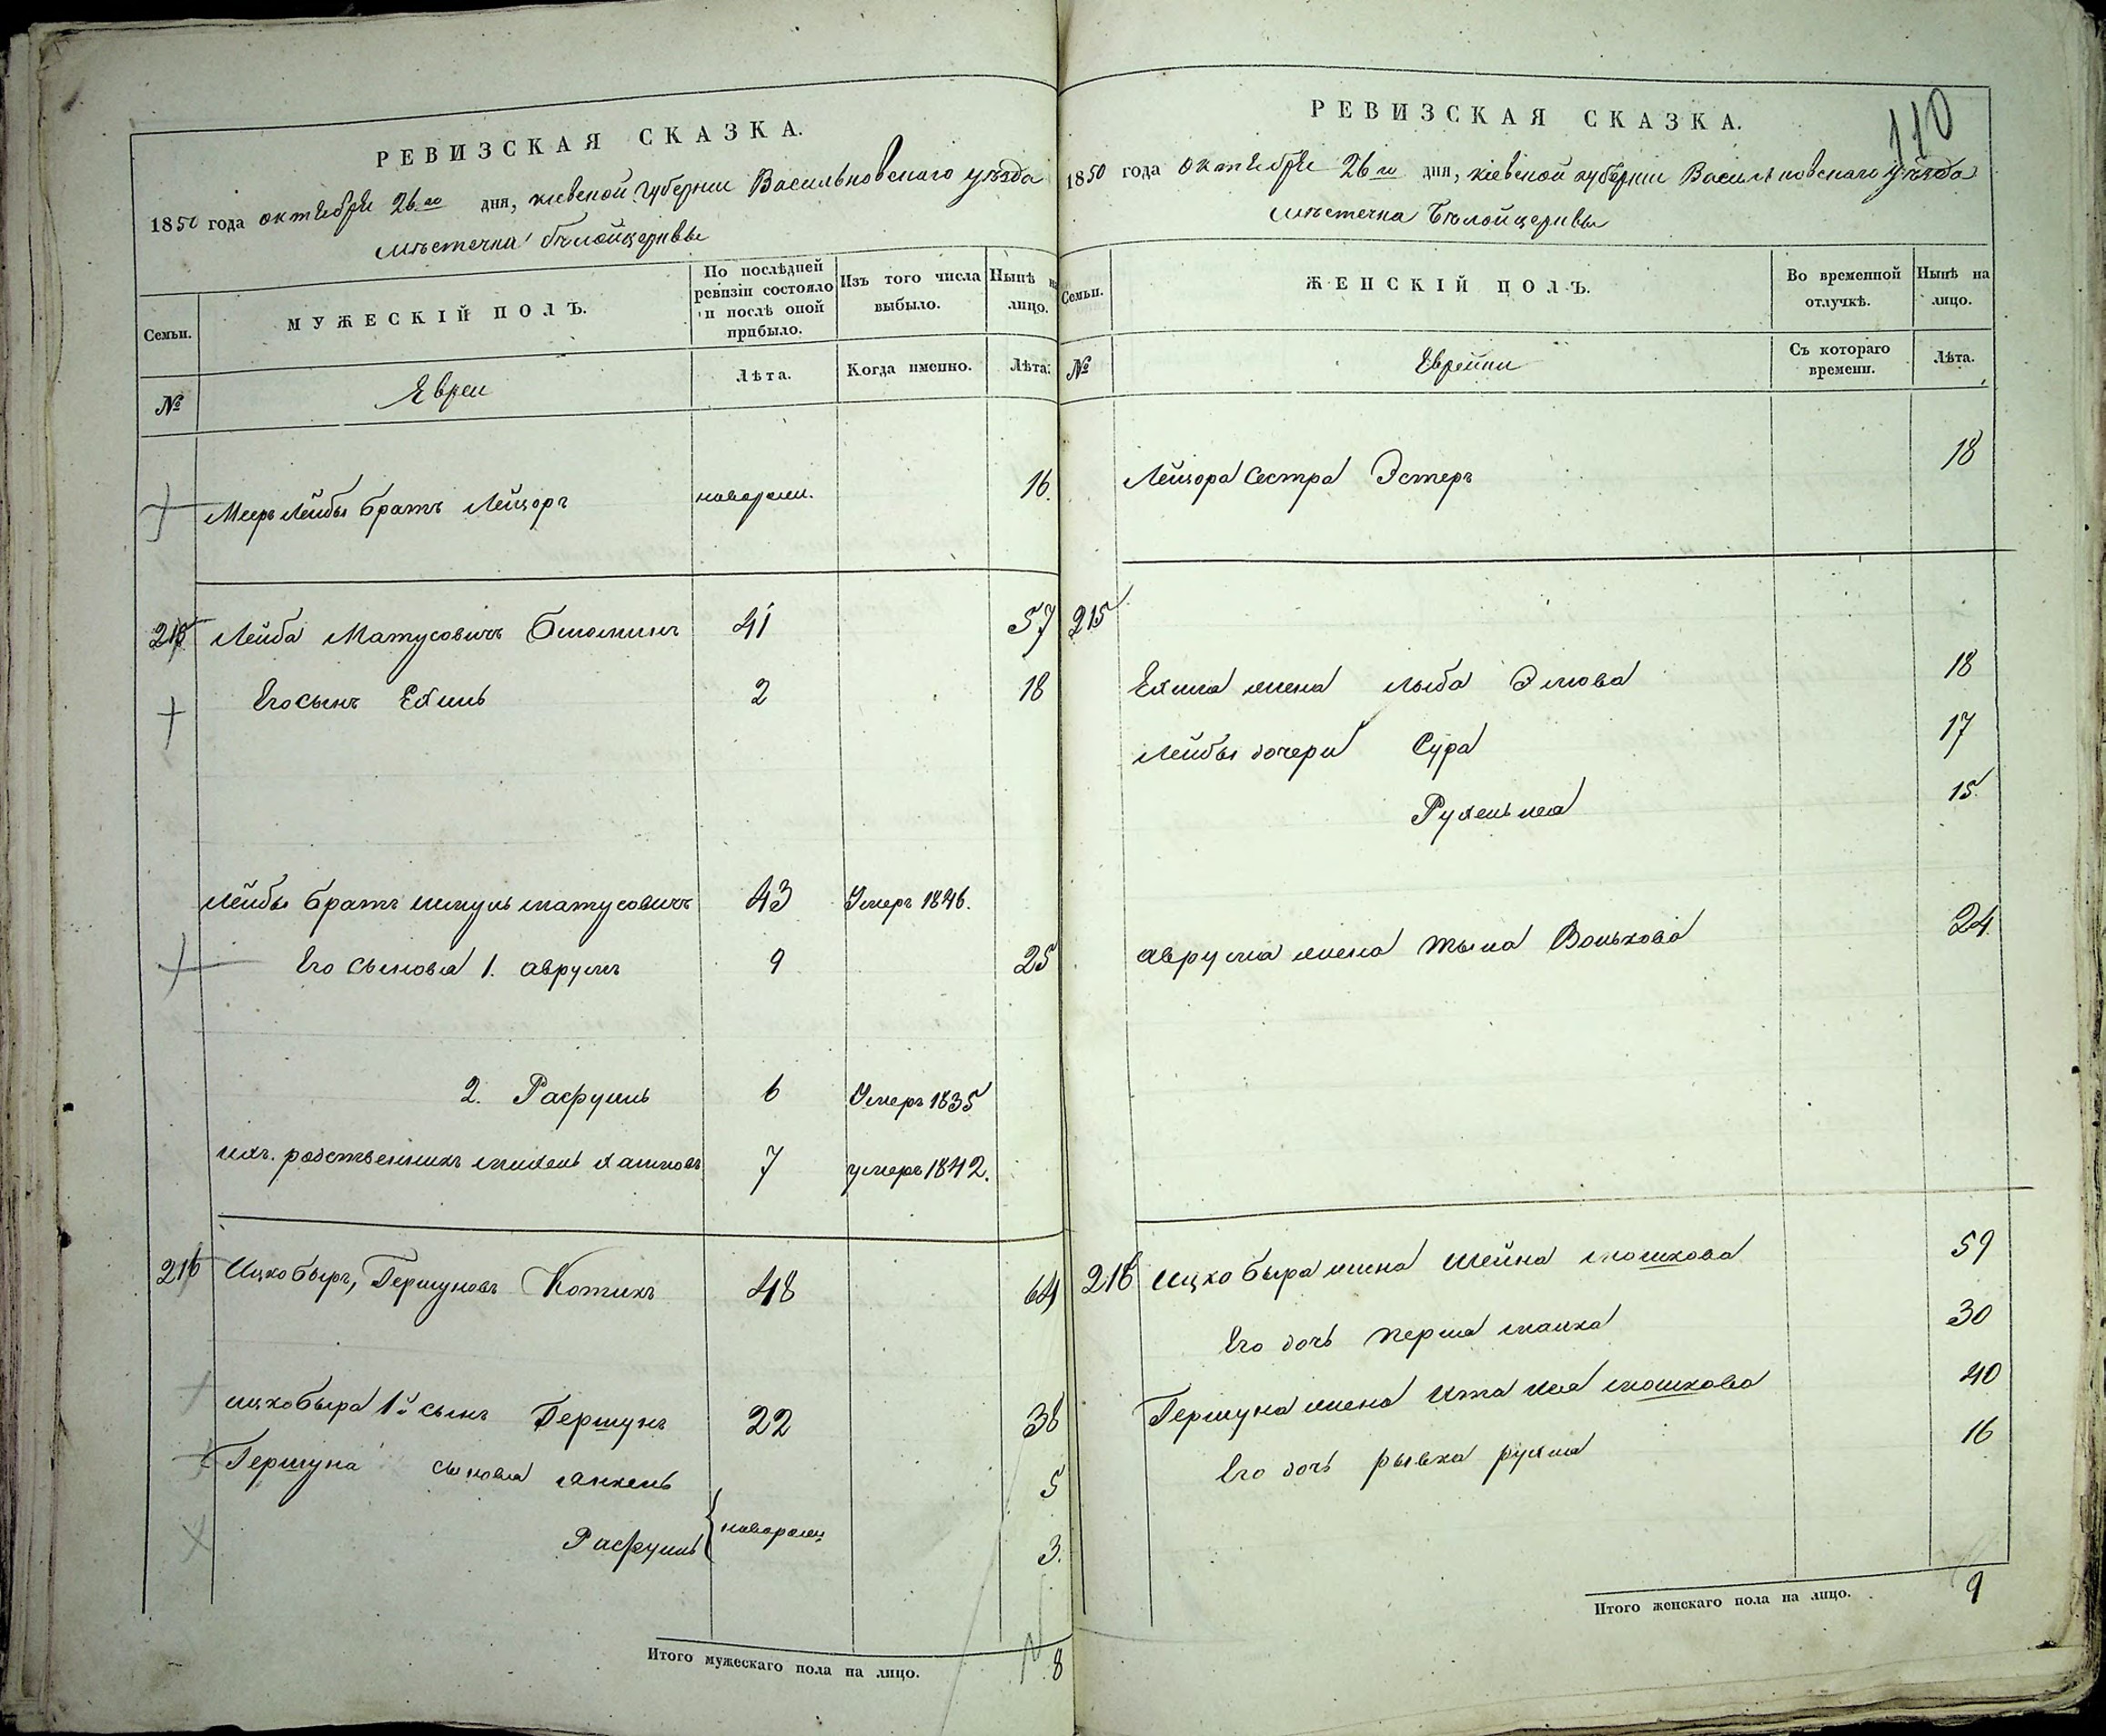 РЕВИЗСКАЯ СКАЗКА.
1850 года октября 26го дня, кіевской губерніи Васильковскаго уѣзда
мѣстечка бѣлойцеркви
Семьи.
МУЖЕСКІЙ ПОЛЪ.
По послѣдней ревизіи состояло и послѣ оной прибыло.
Изъ того числа выбыло.
Нынѣ на лицо.
№
Евреи
Лѣта.
Когда именно.
Лѣта.
Меер Лейбы братъ Лейзоръ новорожд. 16.
215 Лейба Матусовичъ 41 57
Его сынъ Ехиль 2 18
Лейбы братъ шмуль матусовичъ 43 Умеръ 1846.
Его сыновья 1. аврумъ 9 25
2. Расфуиль 6 Умеръ 1835
ихъ родственникъ михель хаимовъ 7 умеръ 1842.
216 Ицко быръ, Гершуновъ Котикъ 48 64
ицко быра 1й сынъ Гершунъ 22 38
Гершуна сыновья янкель 5
Расфуиль новорожд 3.
Итого мужескаго пола на лицо. 8
110
РЕВИЗСКАЯ СКАЗКА.
1850 года октября 26го дня, кіевской губерніи Васильковскаго уѣзда
мѣстечка Бѣлойцеркви
Семьи.
ЖЕНСКІЙ ПОЛЪ.
Во временной отлучкѣ.
Нынѣ на лицо.
№
Еврейки
Съ котораго времени.
Лѣта.
Лейзора сестра Эстеръ 18
215
Ехиля жена лыба 18
Лейбы дочери Сура 17
Рухельма 15
аврума жена Волькова 24
216 Ицко быра жена шейна мошкова 59
Его дочь перля малка 30
Гершуна жена ита мошкова 40
Его дочь рывка рухля 16
Итого женскаго пола на лицо. 9